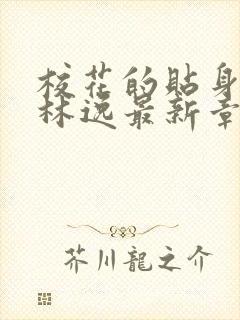 校花的貼身
林逸最新章
芥川龍之介